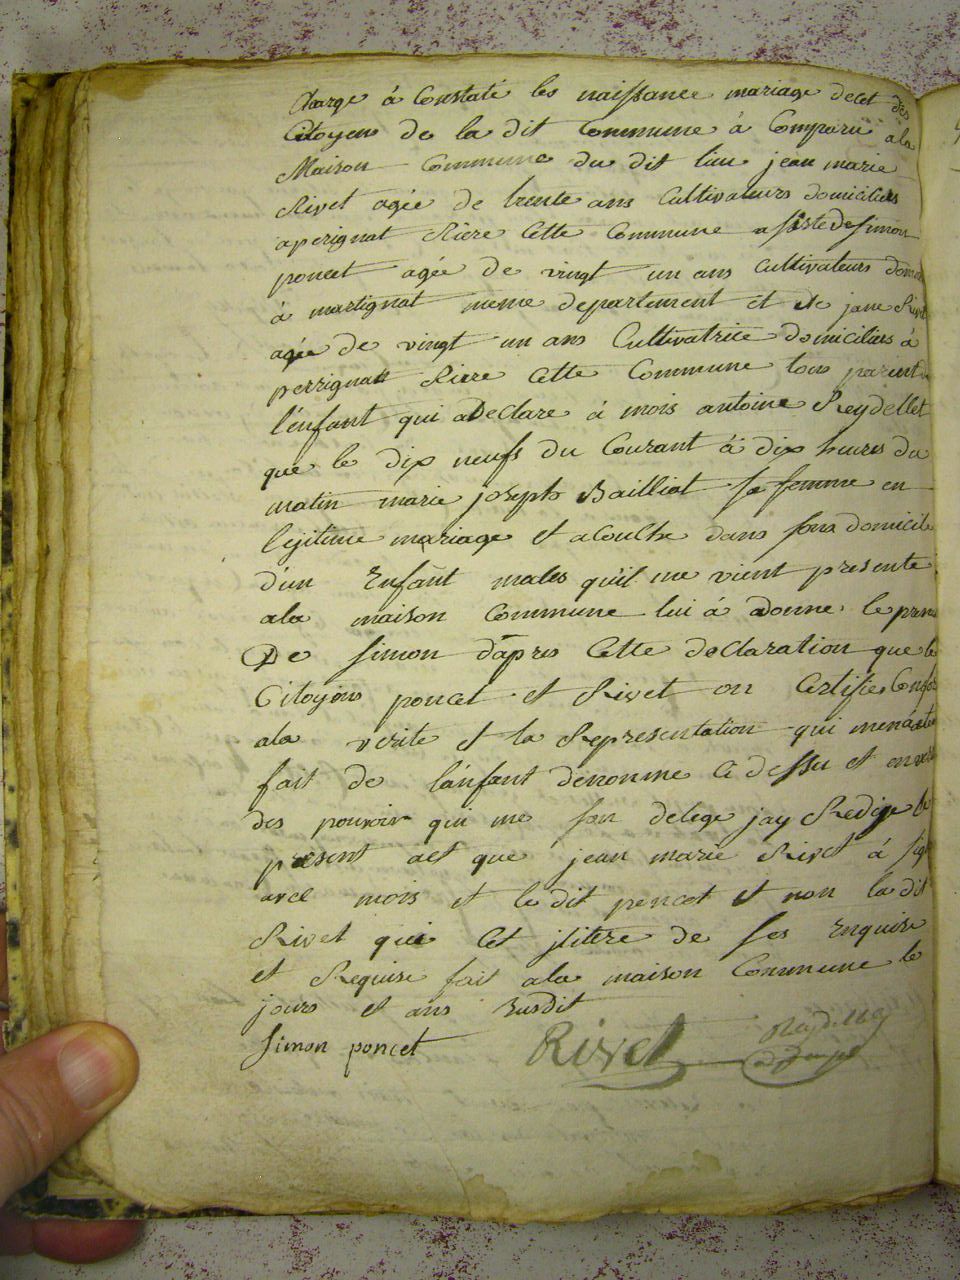 Charge á Constaté les naissance mariage decet des
Citoyens de la dit Commune á Comparu ala
Maison Commune du dit lieu jean marie
Rivet agée de trente ans Cultivateurs domiciliers
aperignat Riere Cette Commune asiste de simon
poncet agée de vingt un ans Cultivateurs dom
á martignat meme departement et de jane Rivet
agée de vingt un ans Cultivatrice domiciliers á
perrignat Riere Cette Commune tous parent
l'énfant qui a Declare á mois antoine Reydellet
que le dix neufs du Courant á dix heures du
matin marie joseph Bailliat sa femme en
légitime mariage et acouche dans sons domicile
d'un Enfant males qu'il me vient presente
ala maison Commune lui á donne le pren
De simon d'apres Cette declaration que le
Citoyons poncet et Rivet on Certifies Confor
ala verite et la Representation qui menáete
fait de l'anfant denonme Ci dessu et en
des pouvoir qui me son delege jay Redige le
present act que jean marie Rivet á sig
avec mois et le dit poncet et non la dit
Rivet qui Cet jlitere de ses Enquise
et Requise fait ala maison Commune le
jours et ans susdit
Simon poncet Rivet